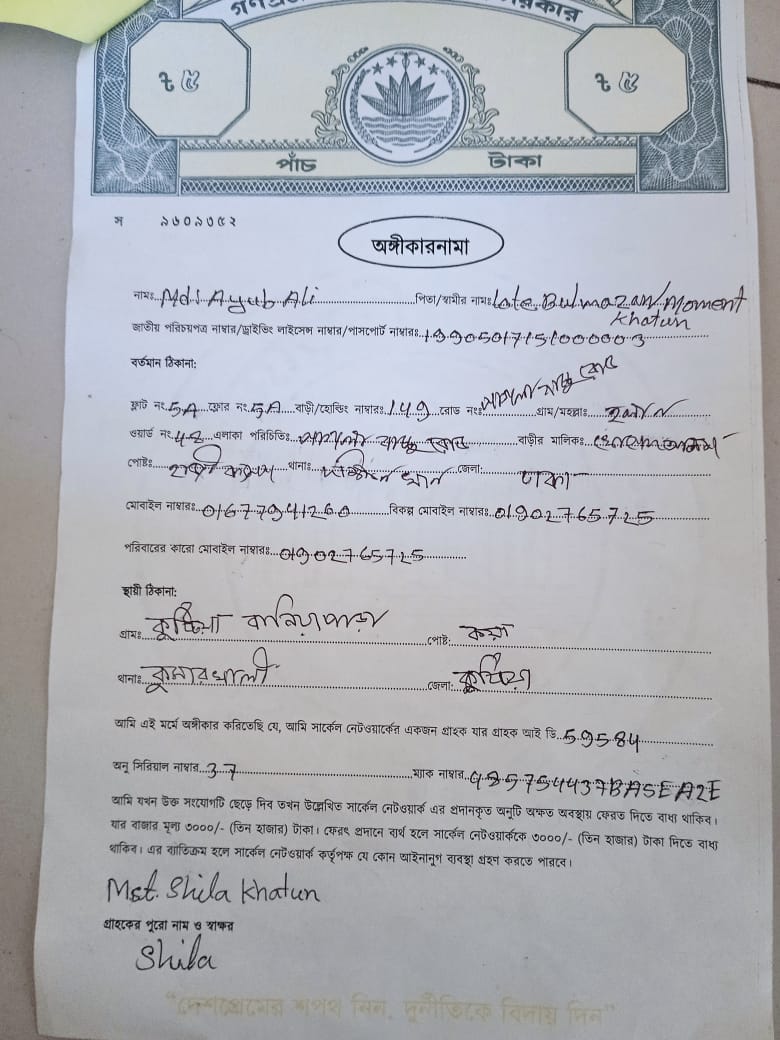 ৳ ৫ ৳ ৫
পাঁচ টাকা
স ৯৬০৯৩৫২
অঙ্গীকারনামা
নামঃ Md. Ayub Ali পিতা/স্বামীর নামঃ Late Bulmazan/Moment Khatun
জাতীয় পরিচয়পত্র নাম্বার/ড্রাইভিং লাইসেন্স নাম্বার/পাসপোর্ট নাম্বারঃ 19905017151000003
বর্তমান ঠিকানা:
ফ্লাট নং. 5A ফ্লোর নং. 5A বাড়ী/হোল্ডিং নাম্বারঃ 149 রোড নংঃ রোড গ্রাম/মহল্লাঃ
ওয়ার্ড নং. 48 এলাকা পরিচিতিঃ রোড বাড়ীর মালিকঃ
পোষ্টঃ থানাঃ জেলা: ঢাকা
মোবাইল নাম্বারঃ 01677941260 বিকল্প মোবাইল নাম্বারঃ 01902765725
পরিবারের কারো মোবাইল নাম্বারঃ 01902765725
স্থায়ী ঠিকানা:
গ্রামঃ কুষ্টিয়া বানিয়াপাড়া পোষ্ট: কয়া
থানাঃ কুমারখালী জেলা: কুষ্টিয়া
আমি এই মর্মে অঙ্গীকার করিতেছি যে, আমি সার্কেল নেটওয়ার্কের একজন গ্রাহক যার গ্রাহক আই ডি. 59584
অনু সিরিয়াল নাম্বার. 37 ম্যাক নাম্বার. 485754437BA5EA2E
আমি যখন উক্ত সংযোগটি ছেড়ে দিব তখন উল্লেখিত সার্কেল নেটওয়ার্ক এর প্রদানকৃত অনুটি অক্ষত অবস্থায় ফেরত দিতে বাধ্য থাকিব।
যার বাজার মূল্য ৩০০০/- (তিন হাজার) টাকা। ফেরৎ প্রদানে ব্যর্থ হলে সার্কেল নেটওয়ার্ককে ৩০০০/- (তিন হাজার) টাকা দিতে বাধ্য
থাকিব। এর ব্যতিক্রম হলে সার্কেল নেটওয়ার্ক কর্তৃপক্ষ যে কোন আইনানুগ ব্যবস্থা গ্রহণ করতে পারবে।
Mst. Shila Khatun
গ্রাহকের পুরো নাম ও স্বাক্ষর
Shila
"দেশপ্রেমের শপথ নিন, দুর্নীতিকে বিদায় দিন"